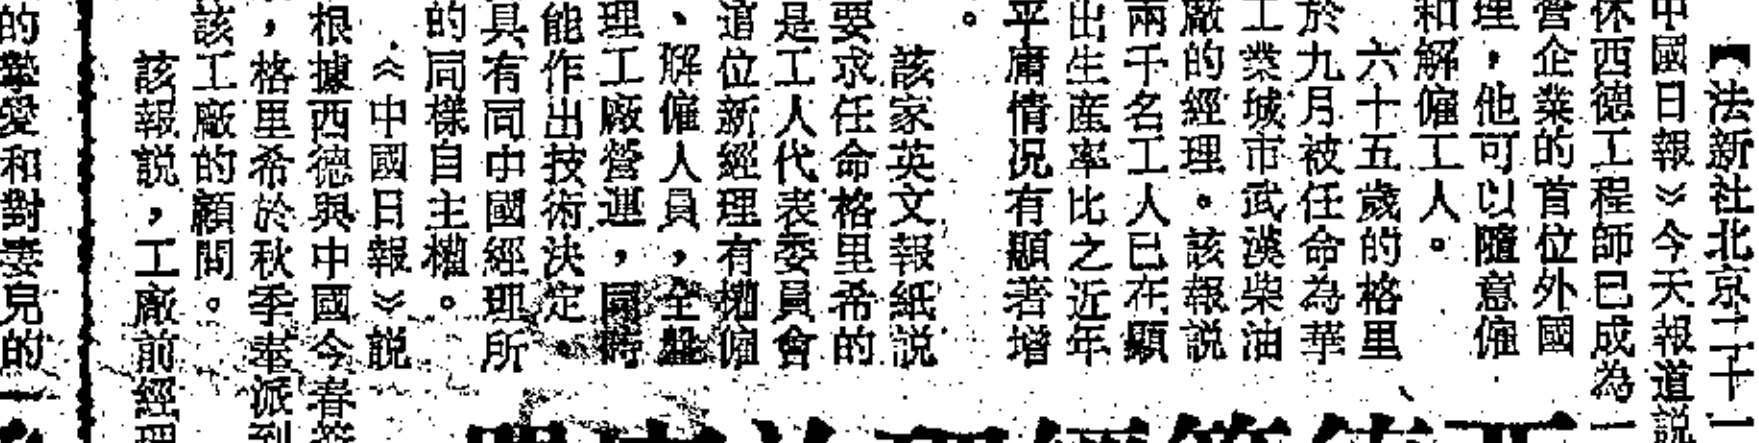 【法新社北京二十一
中國日報》今天報道説
休西德工程師已成為一
營企業的首位外國
理，他可以隨意僱
和解僱工人。
六十五歲的格里
於九月被任命為華
工業城市武漢柴油
廠的經理。該報説
兩千名工人已在顯
出生産率比之近年
平庸情况有顯著增
。
該家英文報紙説
要求任命格里希的
是工人代表委員會
這位新經理有權僱
、解僱人員，全盤
理工廠營運，同時
能作出技術決定。
具有同中國經理所
的同樣自主權。
《中國日報》説
根據西德與中國今春簽
，格里希於秋季奉派到
該工廠的顧問。
該報説，工廠前經理
的摯愛和對妻兒的一